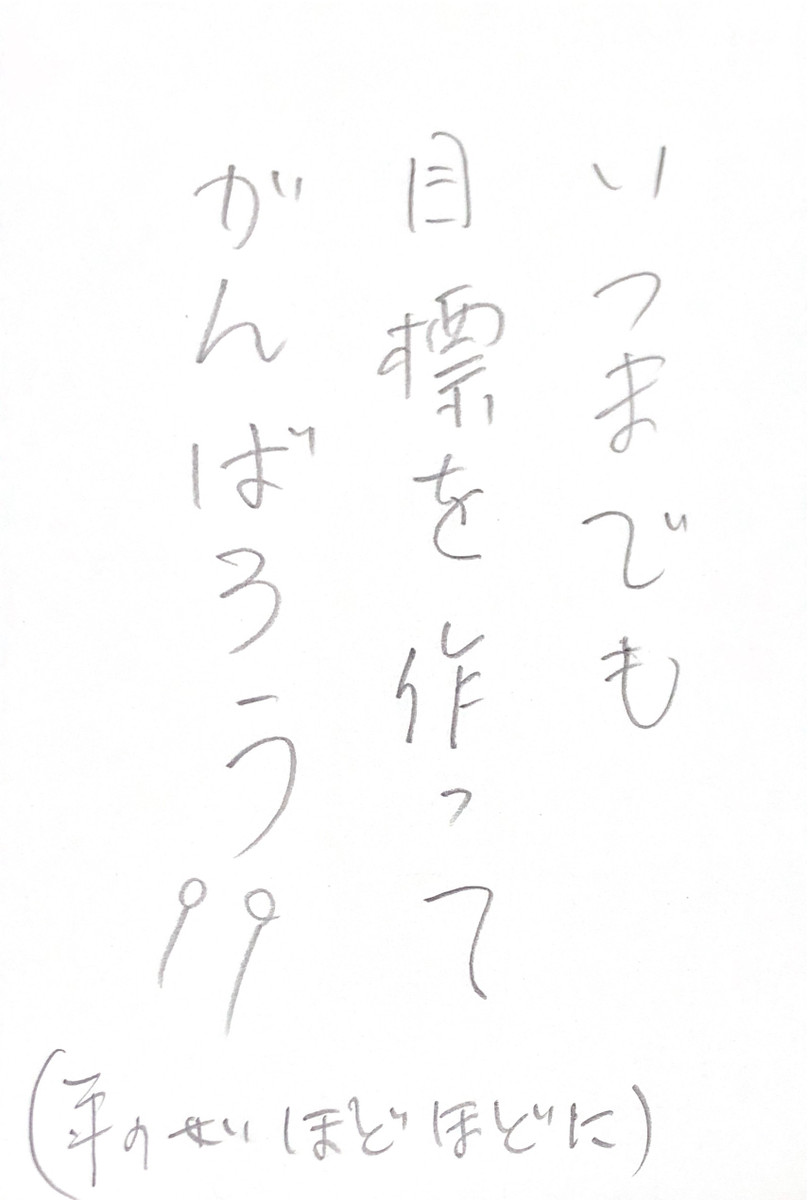 いつまでも
目標を作って
がんばろう!!
(年のせいほどほどに)